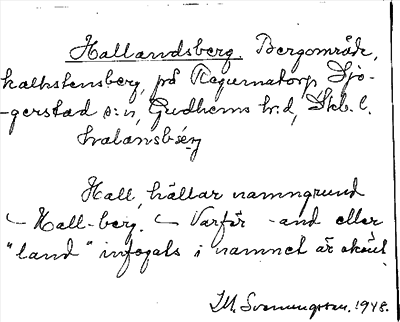 Hallandsberg. Bergområde,
kalkstensberg, på Ragunatorp, Sjo-
-gerstad s:n, Gudhems hr.d, Skb. l.
Hall, hällar namngrund
Hall-berg. Varför -and eller
"land" infogats i namnet är okänt.
I.M. Svenungsson. 1948.